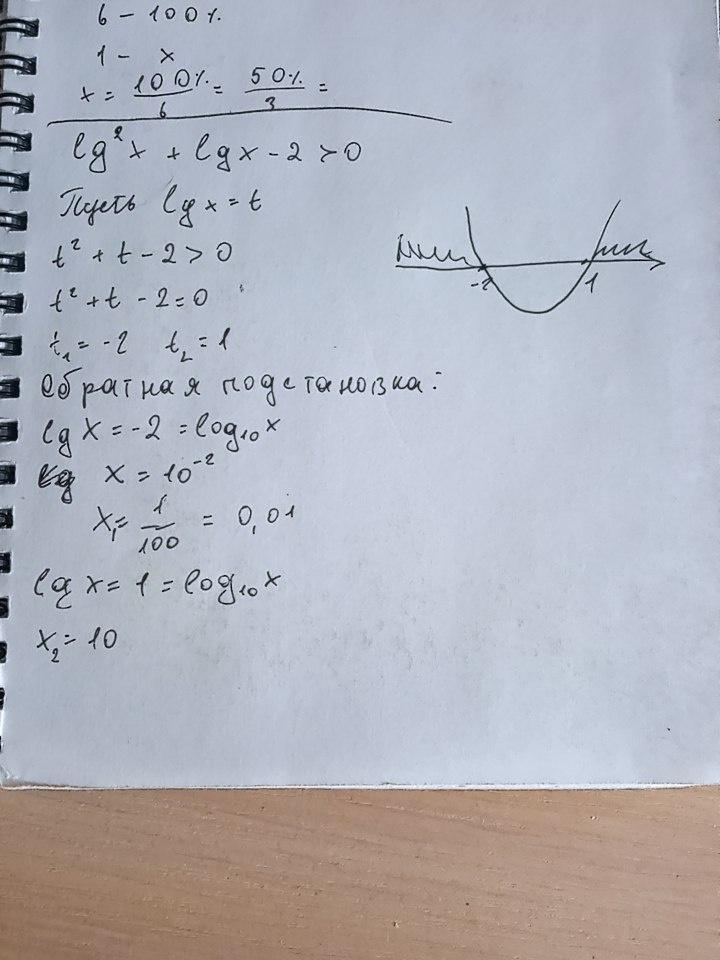 6 – 100%
1 – x
x = 100%/6 = 50%/3 =
lg²x + lgx - 2 > 0
Пусть lgx = t
t² + t - 2 > 0
t² + t - 2 = 0
t₁ = -2 t₂ = 1
-2 1
Обратная подстановка:
lg x = -2 = log₁₀x
x = 10⁻²
x₁ = 1/100 = 0,01
lg x = 1 = log₁₀x
x₂ = 10